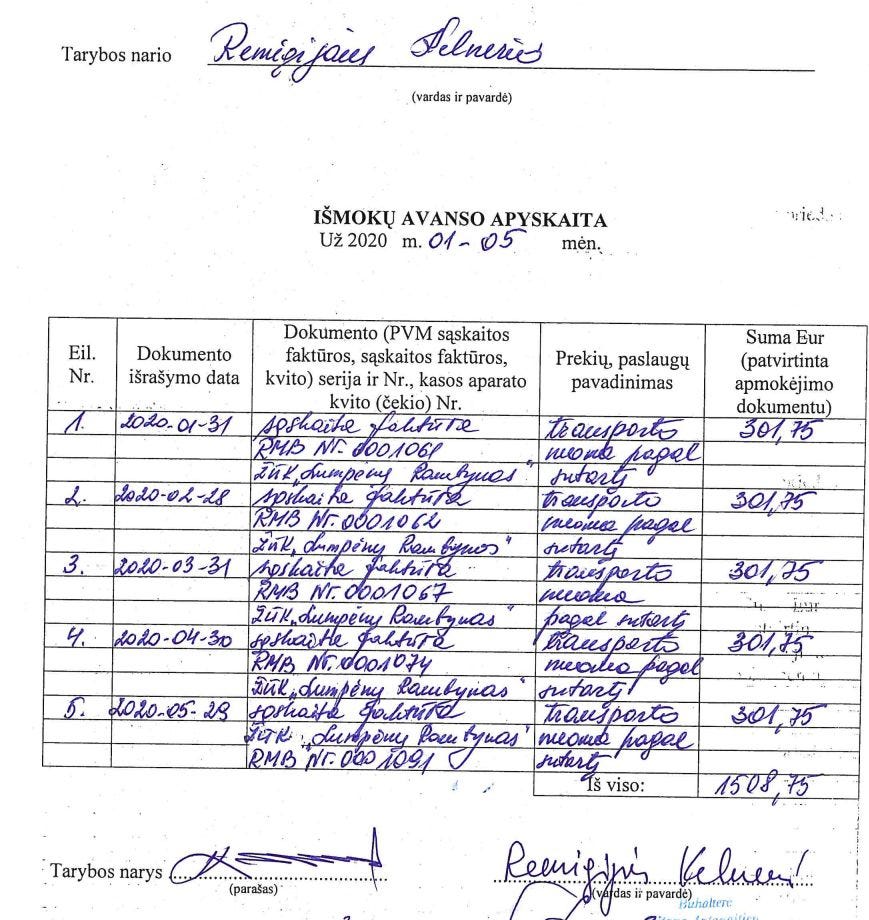 Tarybos nario Remigijaus Kelnerio
(vardas ir pavardė)
IŠMOKŲ AVANSO APYSKAITA
Už 2020 m. 01-05 mėn.
Eil. Nr.
Dokumento išrašymo data
Dokumento (PVM sąskaitos faktūros, sąskaitos faktūros, kvito) serija ir Nr., kasos aparato kvito (čekio) Nr.
Prekių, paslaugų pavadinimas
Suma Eur (patvirtinta apmokėjimo dokumentu)
1. 2020-01-31 sąskaita faktūra transporto 301,75
RMB Nr. 0001061 nuoma pagal
ŽŪK „Lumpėnų Rambynas“ sutartį
2. 2020-02-28 sąskaita faktūra transporto 301,75
RMB Nr. 0001062 nuoma pagal
ŽŪK „Lumpėnų Rambynas“ sutartį
3. 2020-03-31 sąskaita faktūra transporto 301,75
RMB Nr. 0001067 nuoma
ŽŪK „Lumpėnų Rambynas“ pagal sutartį
4. 2020-04-30 sąskaita faktūra transporto 301,75
RMB Nr. 0001074 nuoma pagal
ŽŪK „Lumpėnų Rambynas“ sutartį
5. 2020-05-29 sąskaita faktūra transporto 301,75
ŽŪK „Lumpėnų Rambynas“ nuoma pagal
RMB Nr. 0001091 sutartį
Iš viso: 1508,75
Tarybos narys Remigijus Kelneris
(parašas) (vardas ir pavardė)
Buhalterė